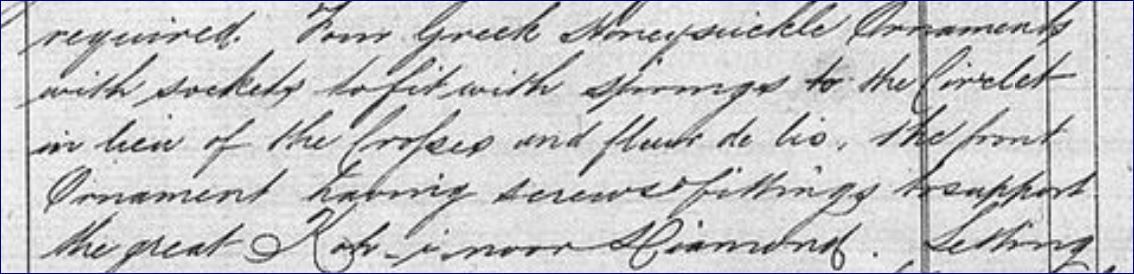 required. Four Greek Honeysuckle Ornaments
with sockets to fit with springs to the Circlet
in lieu of the Crosses and fleur de lis, the front
Ornament having screws & fittings to support
the great Koh-i-noor Diamond. Setting